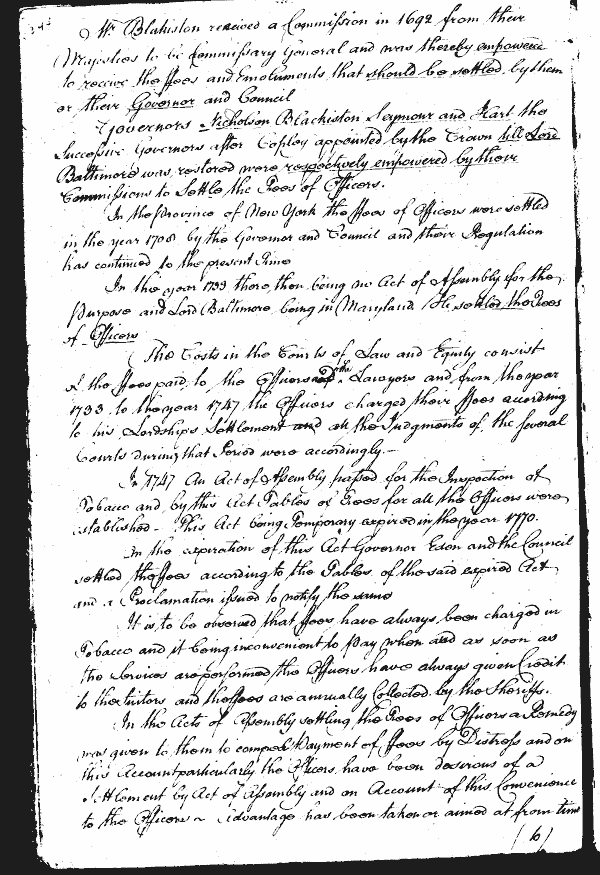 Mr. Blakiston received a Commission in 1692 from their
Majesties to be Commissary General and was thereby empowered
to receive the Fees and Emoluments that should be settled by them
or their Governor and Council
Governors Nicholson Blackiston Seymour and Hart the
Successive Governors after Copley appointed by the Crown till Lord
Baltimore was restored were respectively empowered by their
Commissions to Settle the Fees of Officers.
In the Province of New York the Fees of Officers were settled
in the year 1708 by the Governor and Council and their Regulation
has continued to the present Time
In the year 1733 there then being no Act of Assembly for the
Purpose and Lord Baltimore being in Maryland He settled the Fees
of Officers
The Costs in the Courts of Law and Equity consist
of the Fees paid to the Officers & the Lawyers and from the year
1733 to the year 1747 the Officers charged their Fees according
to his Lordships Settlement and all the Judgments of the several
Courts during that Period were accordingly.—
In 1747 An Act of Assembly passed for the Inspection of
Tobacco and by this Act Tables of Fees for all the Officers were
established - This Act being Temporary expired in the year 1770.
On the expiration of this Act Governor Eden and the Council
settled the Fees according to the Tables of the said expired Act
and a Proclamation issued to notify the same
It is to be observed that Fees have always been charged in
Tobacco and it being inconvenient to Pay when and as soon as
the Services are performed the Officers have always given Credit
to the Suitors and the Fees are annually Collected by the Sheriffs.
In the Acts of Assembly settling the Fees of Officers a Remedy
was given to them to compel Payment of Fees by Distress and on
this Account particularly the Officers have been desirous of a
Settlement by Act of Assembly and on Account of this Convenience
to the Officers a Advantage has been taken or aimed at from time
(to)